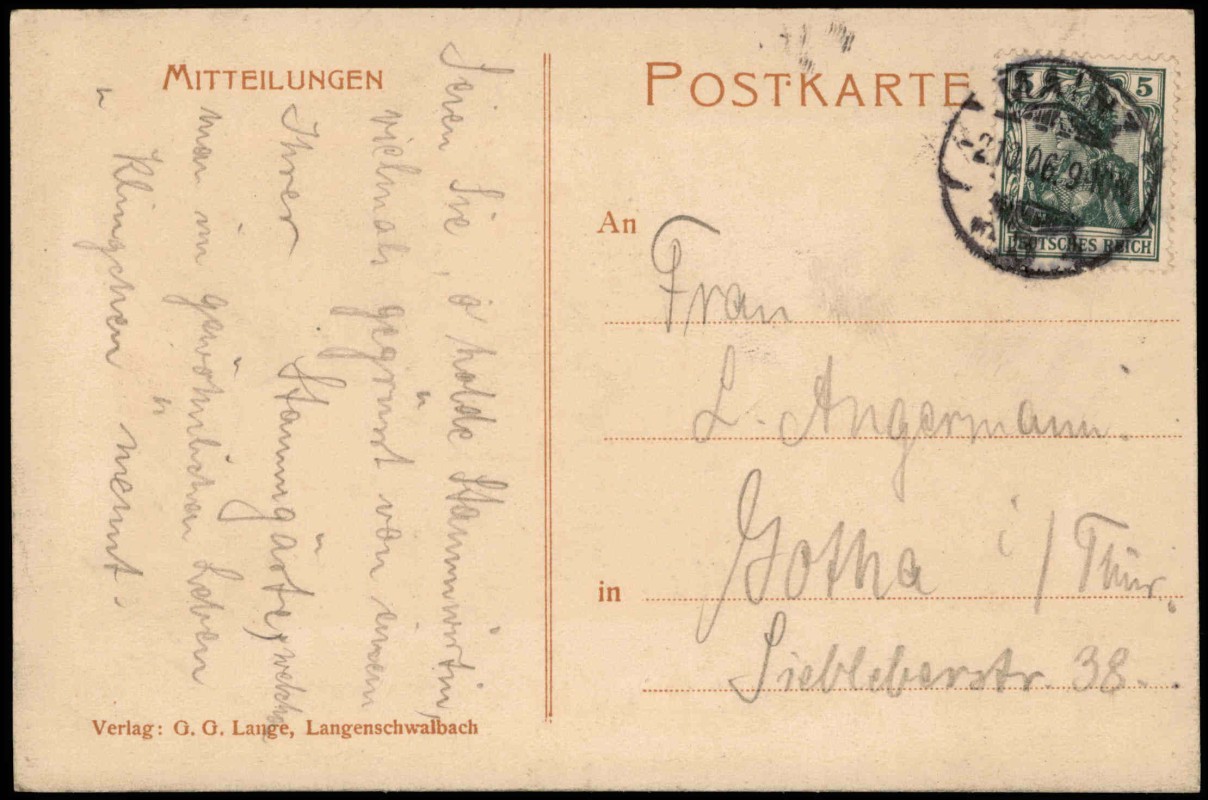 MITTEILUNGEN
Seien Sie, o holde Stammwirtin,
vielmals gegrüßt von einem
Ihrer Stammgäste, welchen
man im gewöhnlichen Leben
"Klingchen" nennt.
Verlag: G. G. Lange, Langenschwalbach
POSTKARTE
5 5
2.10.06. 9
DEUTSCHES REICH
An Frau
L. Angermann.
in Gotha i/Thür.
Siebleberstr. 38.